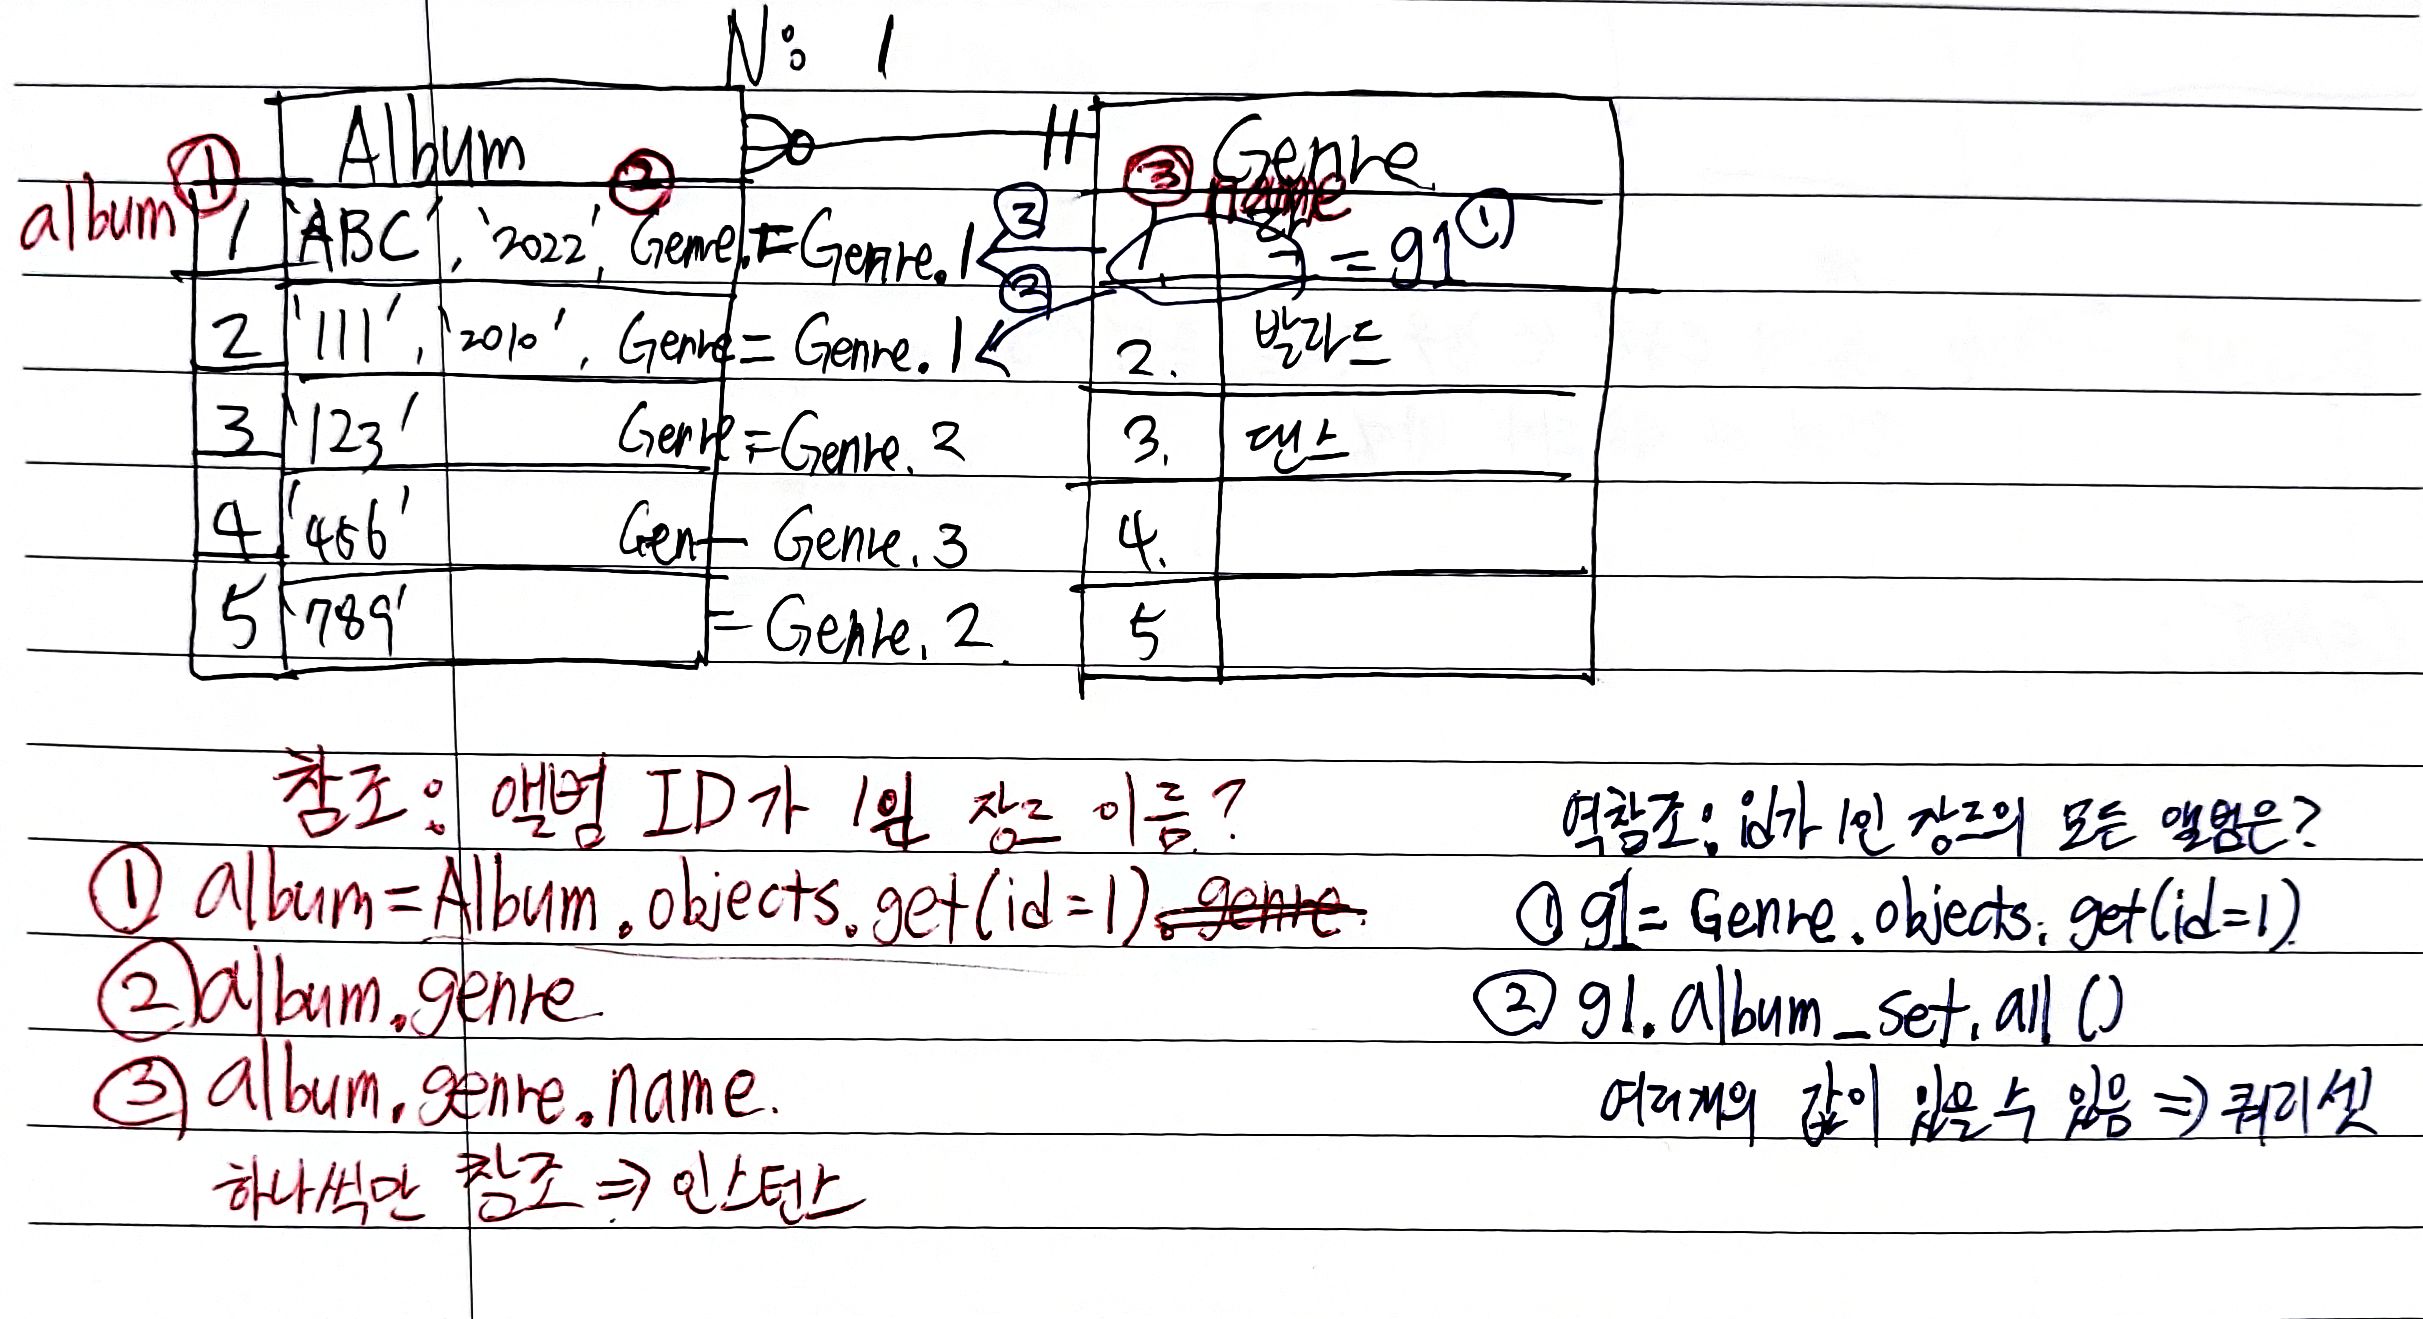 N : 1
Album
Genre
① ② ③ name
album 1 'ABC', '2022', Genre = Genre.1 ② 1 = g1 ①
②
2 '111', '2010', Genre = Genre.1 2. 발라드
3 '123' Genre = Genre.2 3. 댄스
4 '456' Gen Genre.3 4.
5 '789' = Genre.2 5
참조: 앨범 ID가 1인 장르 이름?
① album = Album.objects.get(id=1).genre.
② album.genre
③ album.genre.name.
하나씩만 참조 ⇒ 인스턴스
역참조: id가 1인 장르의 모든 앨범은?
① g1 = Genre.objects.get(id=1)
② g1.album_set.all()
여러개의 값이 있을 수 있음 ⇒ 쿼리셋